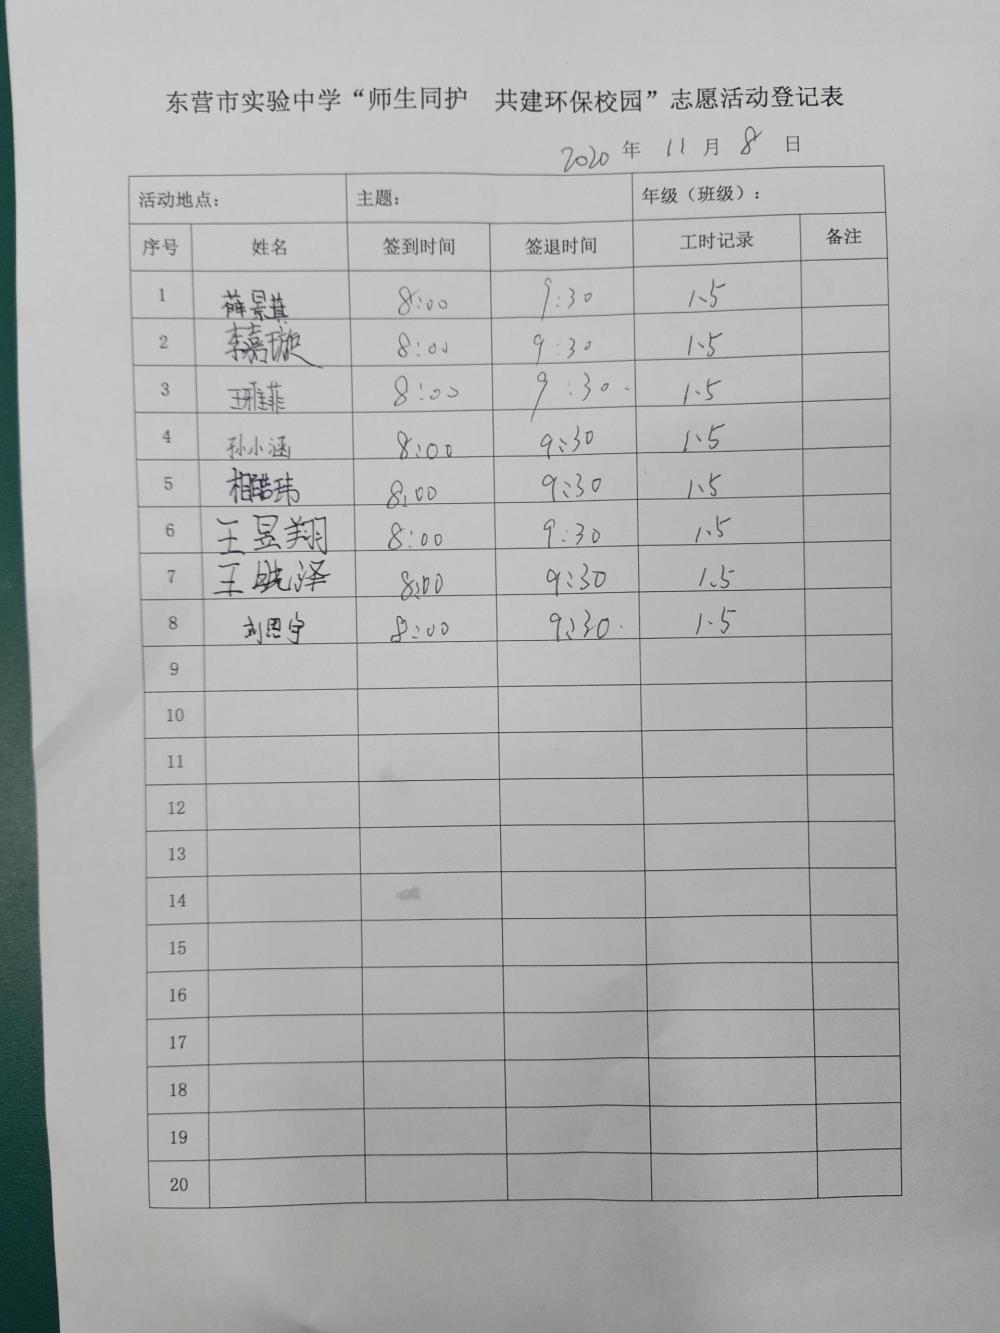 东营市实验中学“师生同护 共建环保校园”志愿活动登记表
2020 年 11 月 8 日
活动地点： 主题： 年级（班级）：
序号 姓名 签到时间 签退时间 工时记录 备注
1 薛景萁 8:00 9:30 1.5
2 李嘉璇 8:00 9:30 1.5
3 王雅菲 8:00 9:30. 1.5
4 孙小涵 8:00 9:30 1.5
5 相皓玮 8:00 9:30 1.5
6 王昱翔 8:00 9:30 1.5
7 王皖泽 8:00 9:30 1.5
8 刘恩宇 8:00 9:30. 1.5
9
10
11
12
13
14
15
16
17
18
19
20